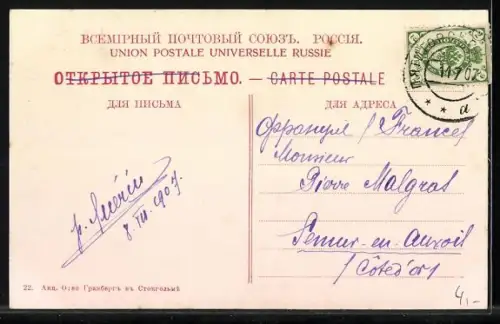 ВСЕМІРНЫЙ ПОЧТОВЫЙ СОЮЗЪ. РОССІЯ.
UNION POSTALE UNIVERSELLE RUSSIE
ОТКРЫТОЕ ПИСЬМО. — CARTE POSTALE
ДЛЯ ПИСЬМА
ДЛЯ АДРЕСА
11 7 07
а
Франция / France /
Monsieur
Pierre Malgras
Semur-en-Auxois
/ Côte d'or /
8 VII. 1907.
22. Акц. О-во Гранбергъ въ Стокгольмѣ
4,-